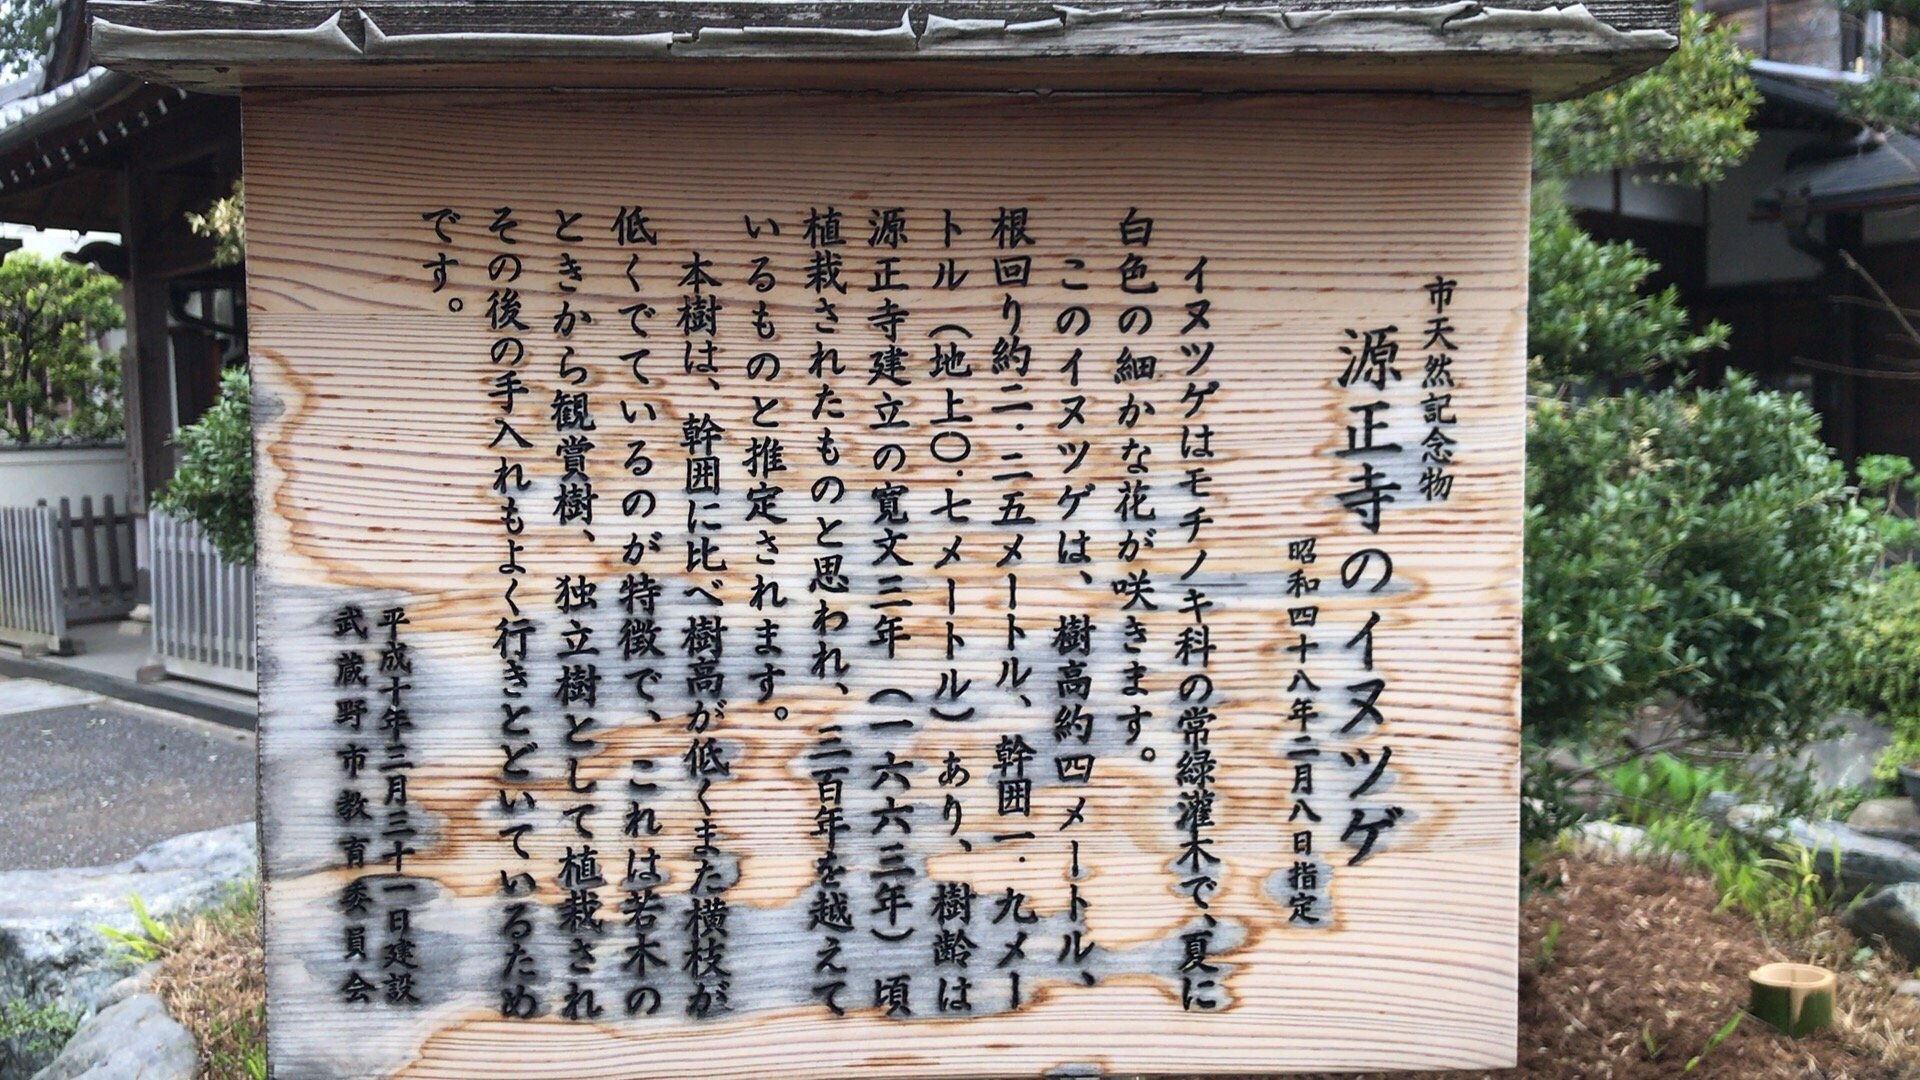 市天然記念物
源正寺のイヌツゲ
昭和四十八年二月八日指定
イヌツゲはモチノキ科の常緑灌木で、夏に
白色の細かな花が咲きます。
このイヌツゲは、樹高約四メートル、
根回り約二・二五メートル、幹囲一・九メー
トル（地上〇・七メートル）あり、樹齢は
源正寺建立の寛文三年（一六六三年）頃
植栽されたものと思われ、三百年を越えて
いるものと推定されます。
本樹は、幹囲に比べ樹高が低くまた横枝が
低くでているのが特徴で、これは若木の
ときから観賞樹、独立樹として植栽され
その後の手入れもよく行きとどいているため
です。
平成十年三月三十一日建設
武蔵野市教育委員会